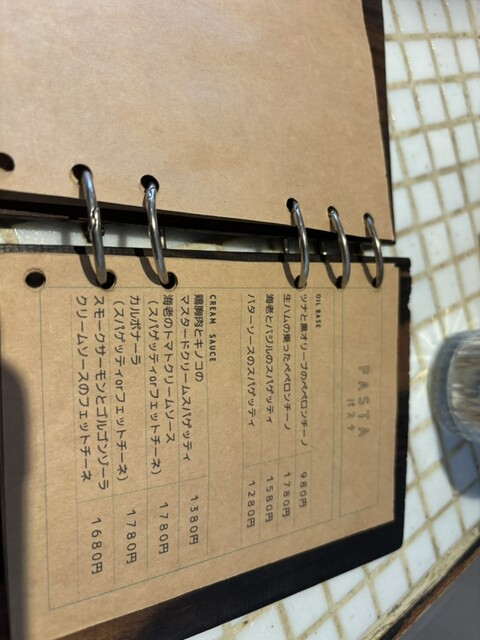 PASTA
パスタ
OIL BASE
ツナと黒オリーブのペペロンチーノ 980円
生ハムの乗ったペペロンチーノ 1780円
海老とバジルのスパゲッティ 1580円
バターソースのスパゲッティ 1280円
CREAM SAUCE
鶏胸肉とキノコの
マスタードクリームスパゲッティ 1380円
海老のトマトクリームソース
(スパゲッティorフェットチーネ) 1780円
カルボナーラ
(スパゲッティorフェットチーネ) 1780円
スモークサーモンとゴルゴンゾーラ
クリームソースのフェットチーネ 1680円